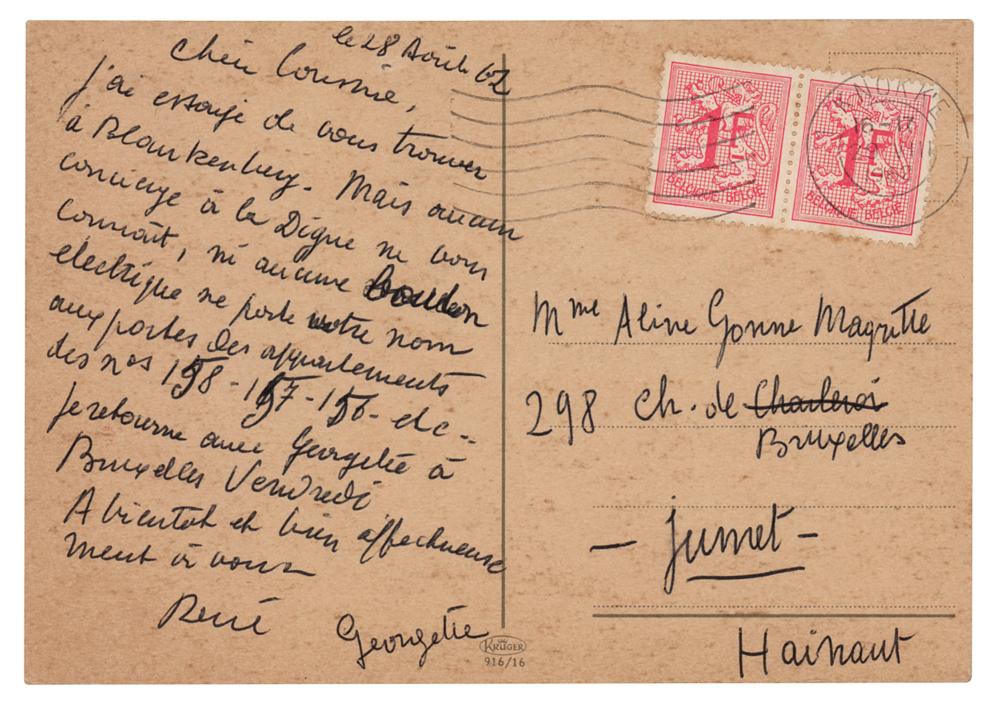 le 28 Août 62
Chère Cousine,
J'ai essayé de vous trouver
à Blankenberg. Mais aucun
concierge à la Digue ne vous
connait, ni aucune bouton
electrique ne porte votre nom
aux portes des appartements
des nos 158 - 157 - 156 - etc --
Je retourne avec Georgette à
Bruxelles Vendredi
A bientot et bien affectueuse
ment à vous
René
Georgette
KRÜGER
916/16
1F
BELGIQUE-BELGIË
1F
BELGIQUE-BELGIË
KNOKKE
16-17
Mme Aline Gonne Magritte
298 ch. de Charleroi
Bruxelles
- Jumet -
Hainaut